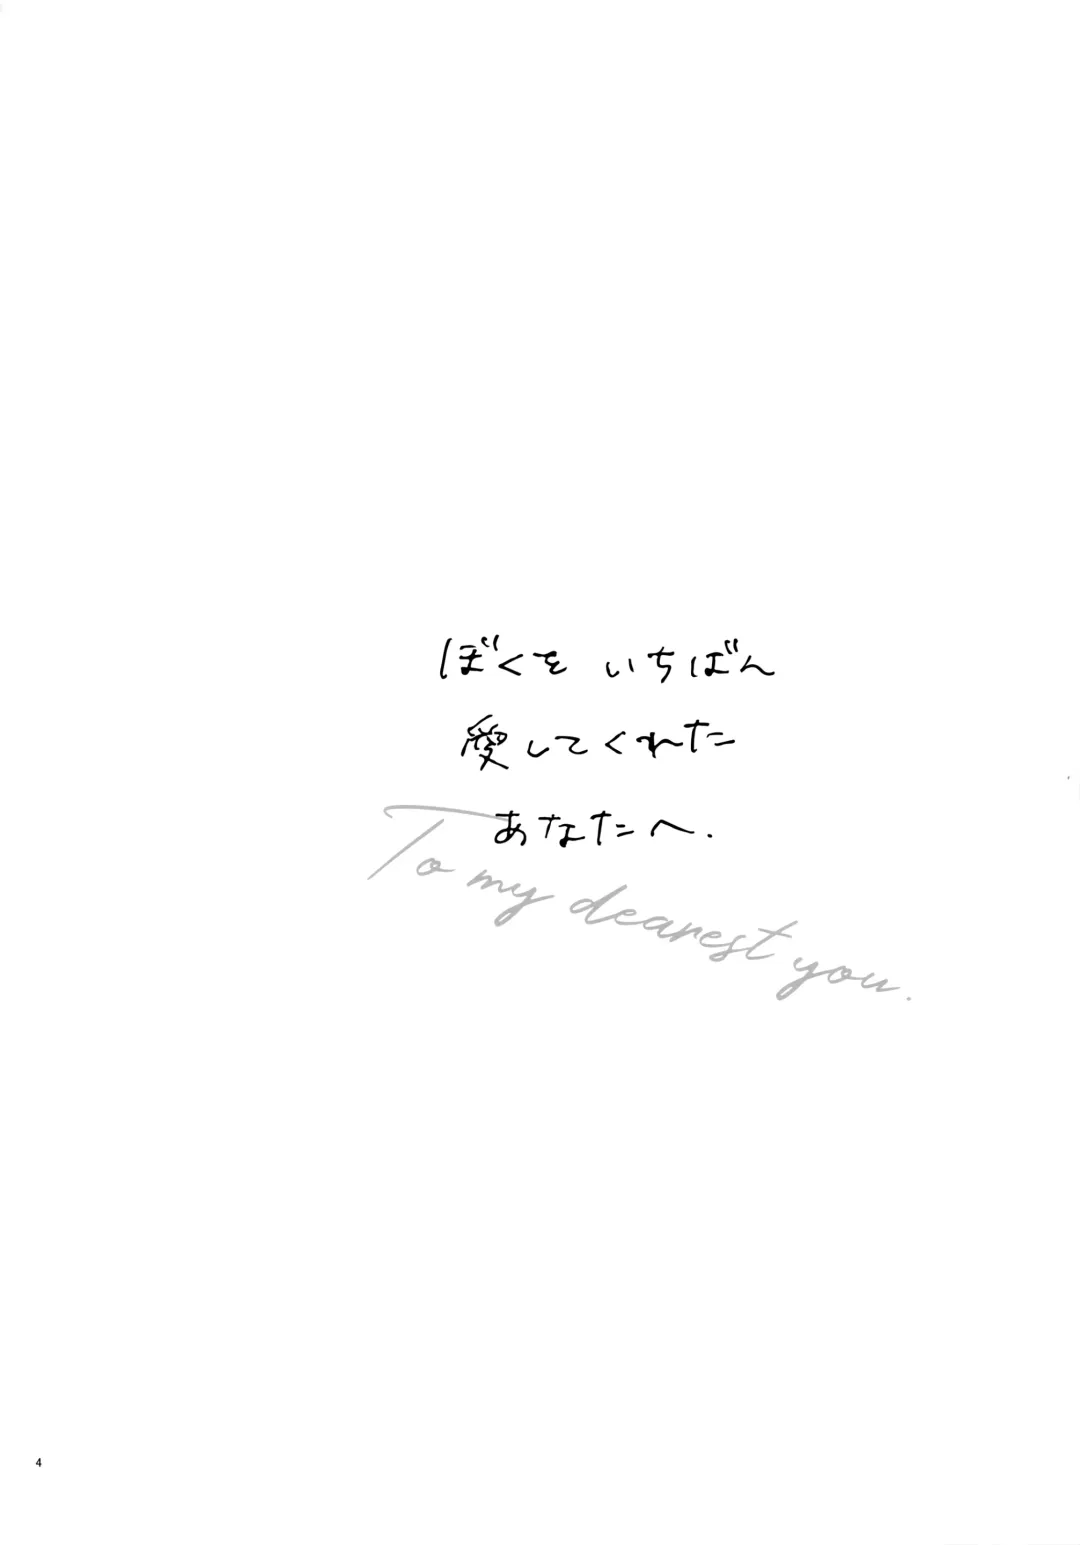 ぼくを いちばん
愛してくれた
あなたへ.
To my dearest you.
4